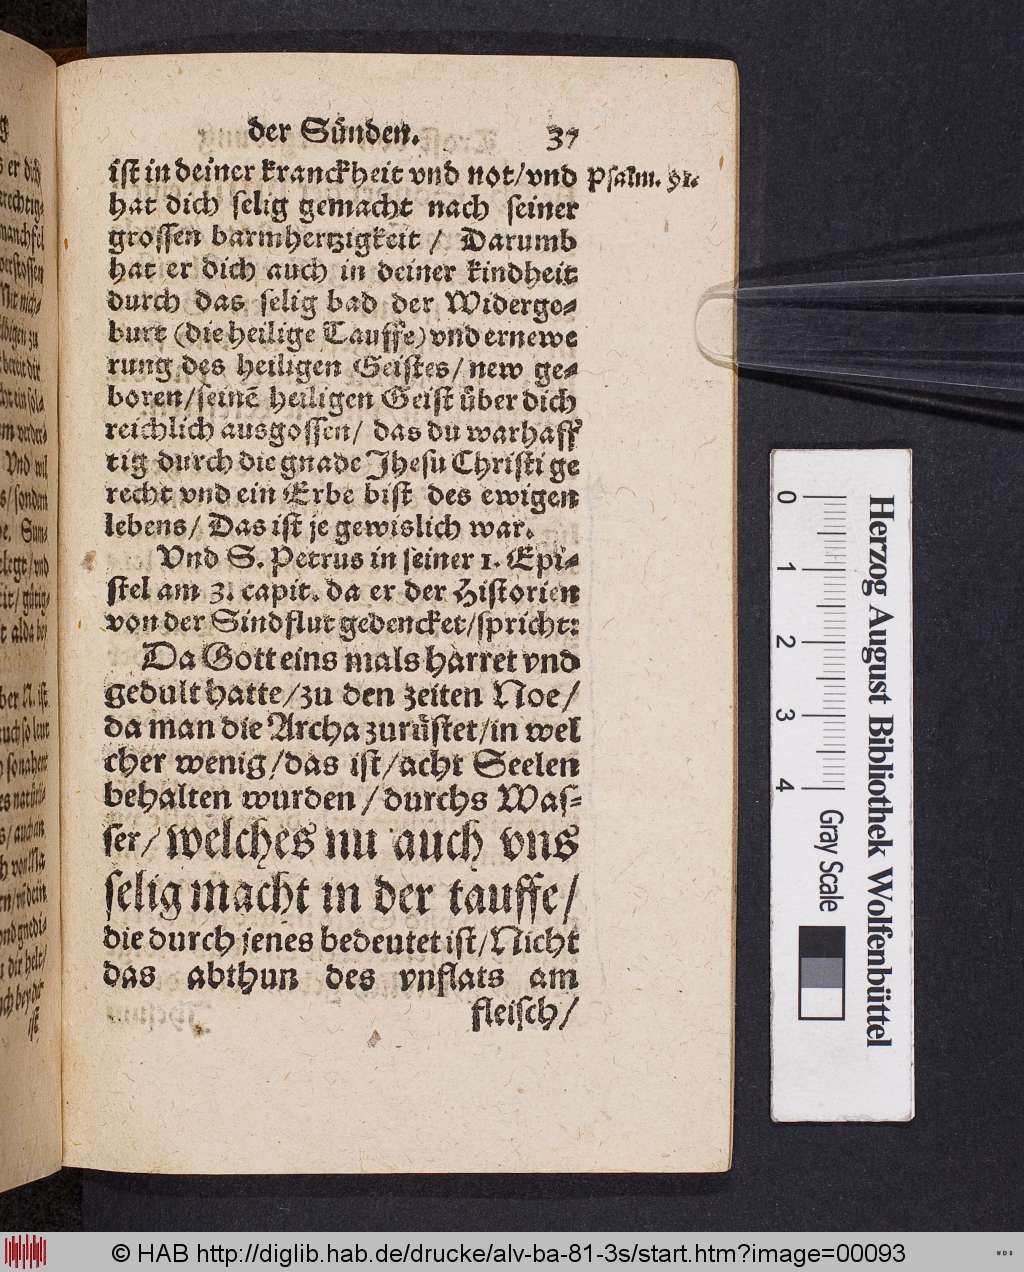 der Sünden. 37
ist in deiner kranckheit vnd not/vnd Psalm. 91.
hat dich selig gemacht nach seiner
grossen barmhertzigkeit / Darumb
hat er dich auch in deiner kindheit
durch das selig bad der Widerge-
burt (die heilige Tauffe) vnd ernewe
rung des heiligen Geistes/ new ge-
boren/seinē heiligen Geist über dich
reichlich ausgossen/ das du warhaff
tig durch die gnade Jhesu Christi ge
recht vnd ein Erbe bist des ewigen
lebens/ Das ist je gewislich war.
Vnd S. Petrus in seiner 1. Epi-
stel am 3. capit. da er der Historien
von der Sindflut gedencket/spricht:
Da Gott eins mals harret vnd
gedult hatte/zu den zeiten Noe/
da man die Archa zurüstet/in wel
cher wenig/das ist/acht Seelen
behalten wurden/durchs Was-
ser/welches nu auch vns
selig macht in der tauffe/
die durch jenes bedeutet ist/Nicht
das abthun des vnflats am
fleisch/
0 1 2 3 4
Gray Scale
Herzog August Bibliothek Wolfenbüttel
© HAB http://diglib.hab.de/drucke/alv-ba-81-3s/start.htm?image=00093